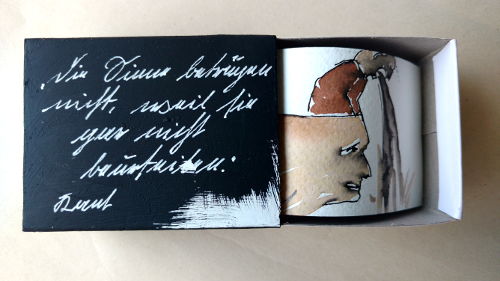 „Die Sinne betrügen
nicht, weil sie
gar nicht
beurteilen."
Kant